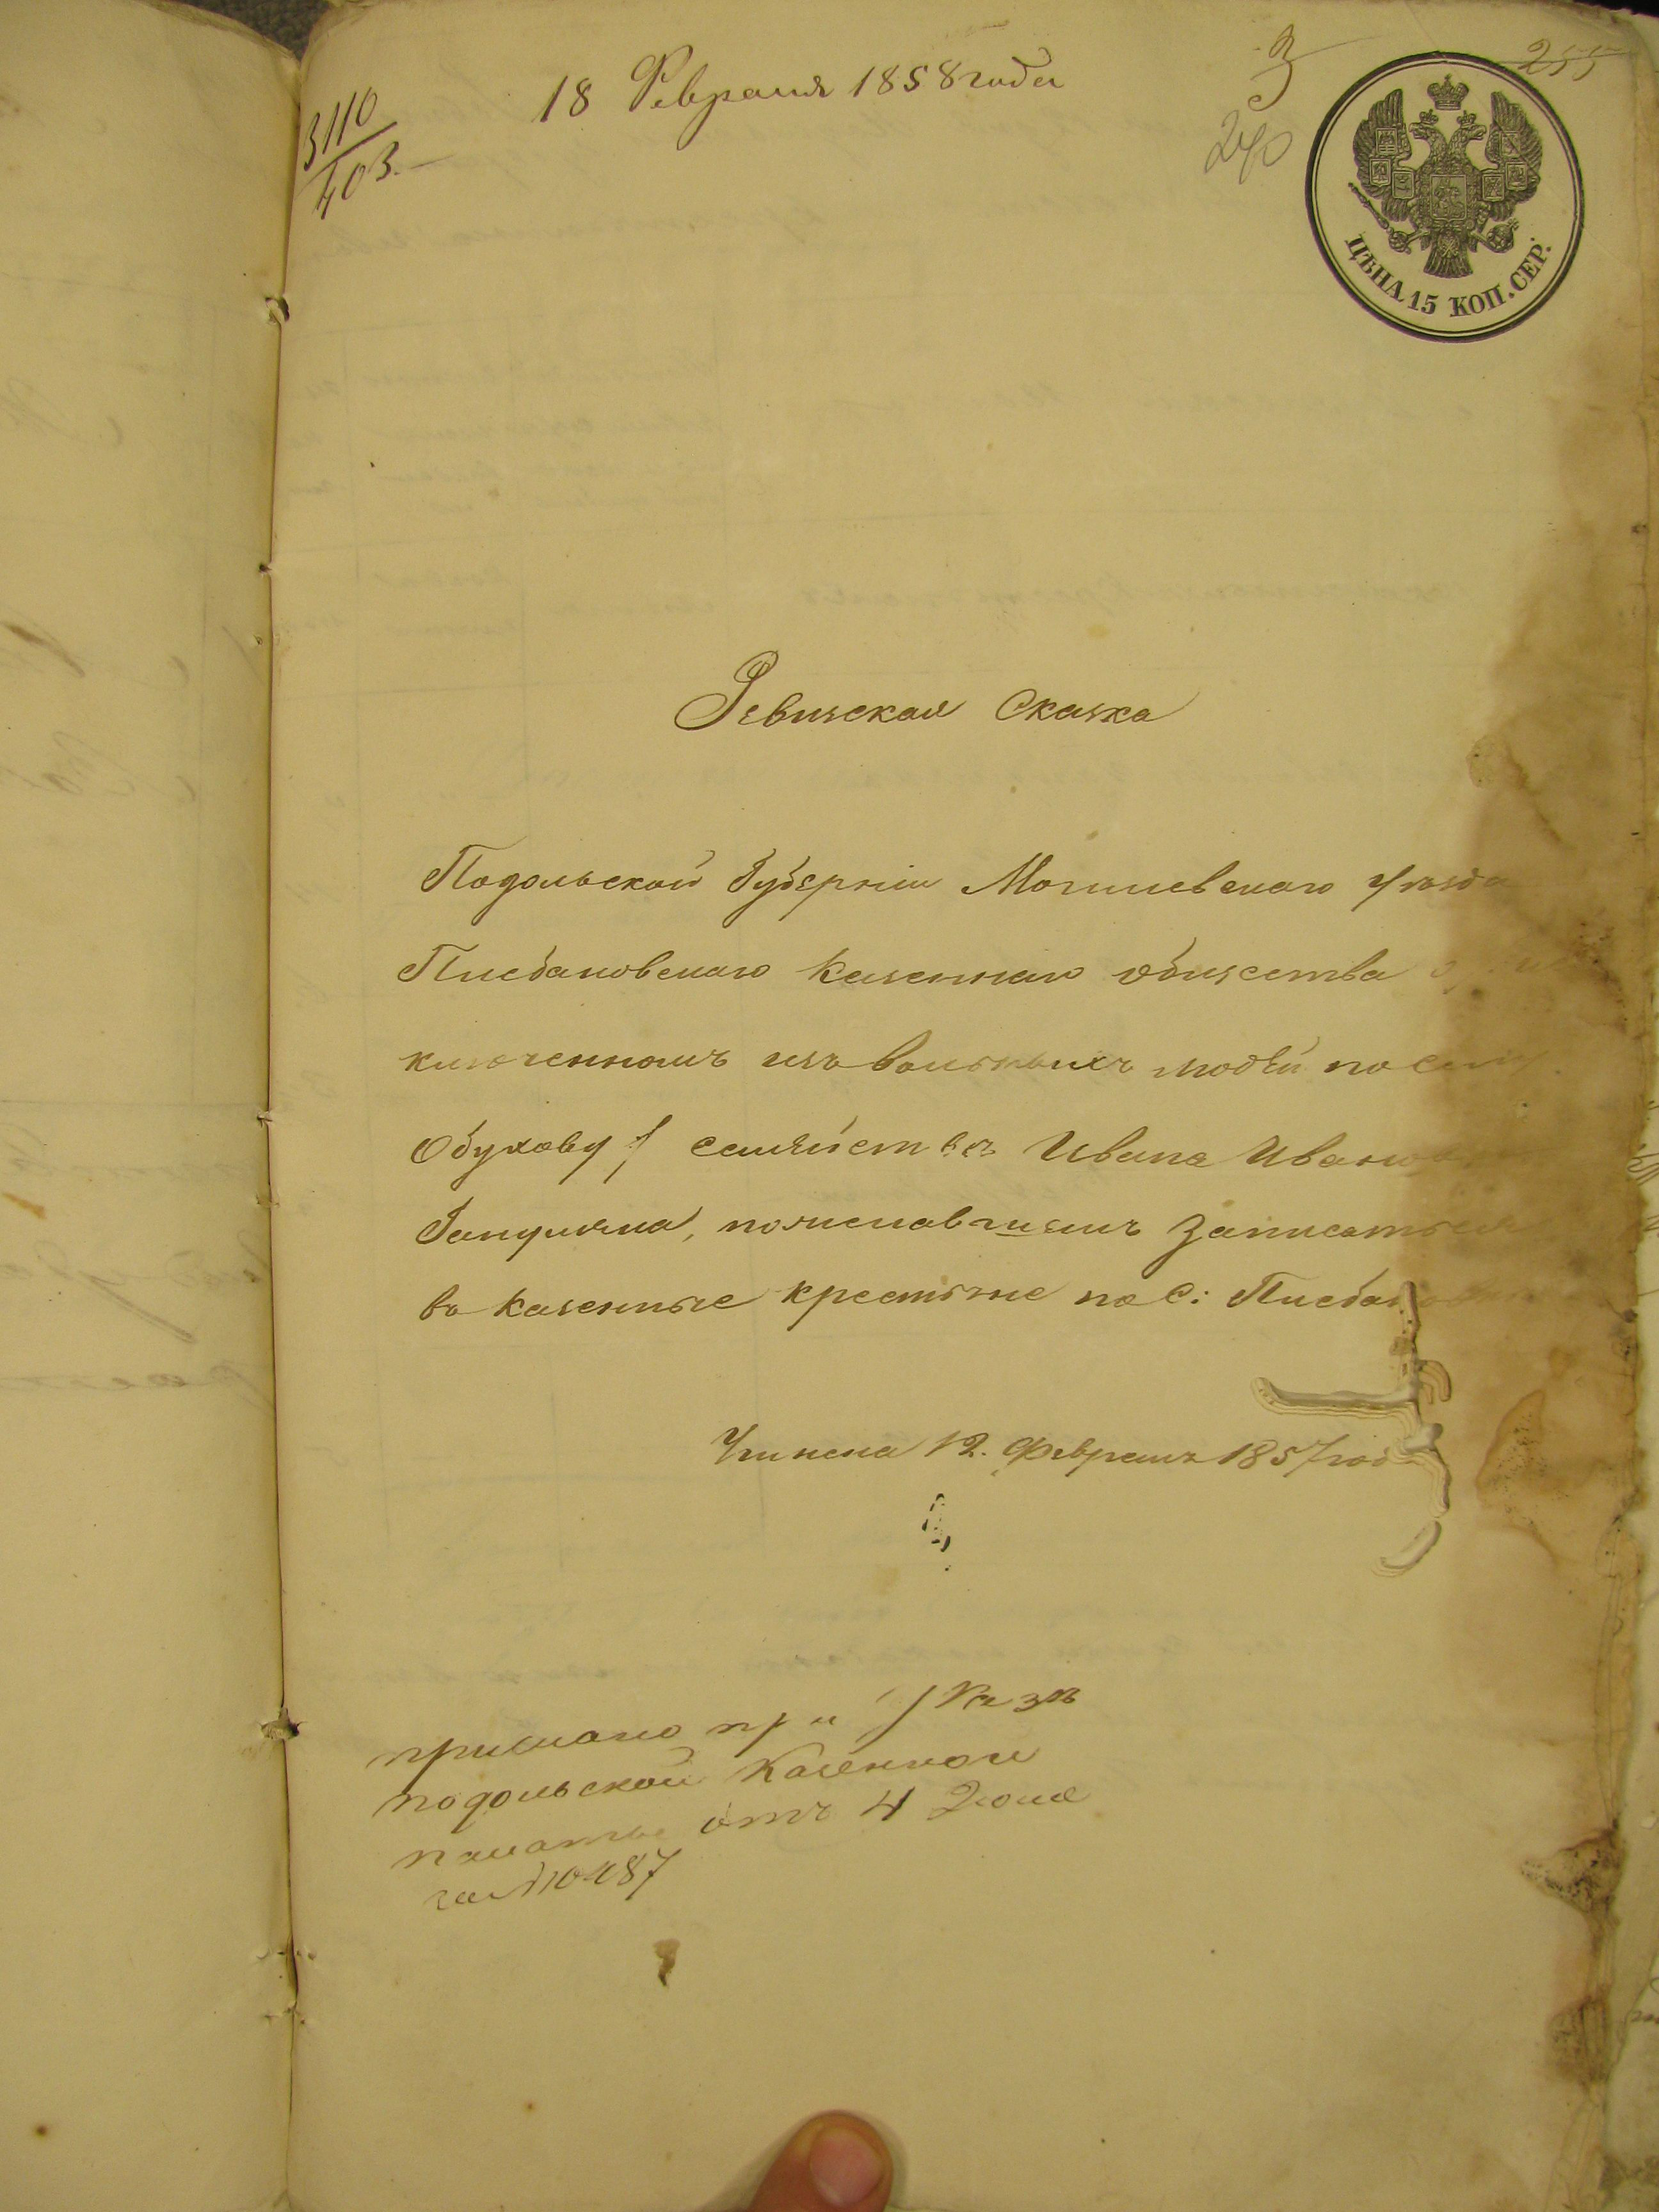 18 Февраля 1858 года
3
255
240
3110
403.
ЦѢНА 15 КОП. СЕР.
Ревизская Сказка
Подольской Губерніи Могилевскаго Уѣзда
Плебановскаго Казеннаго общества о
ключенномъ изъ вольныхъ людей по селу
Обухову, семействѣ Ивана Иванов
пожелавшемъ записаться
въ казенные крестьяне по С: Плебан
Учинена 12. Февраля 1857 год
прислано при Указѣ
подольской Казенной
палаты отъ 4 Іюля
за №10487